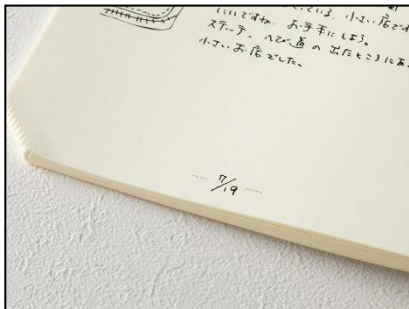 いる、小さい店です
いいですね。お手本にしよう。
ステッチ、へび道の出たところにあ
小さいお店でした。
7/19